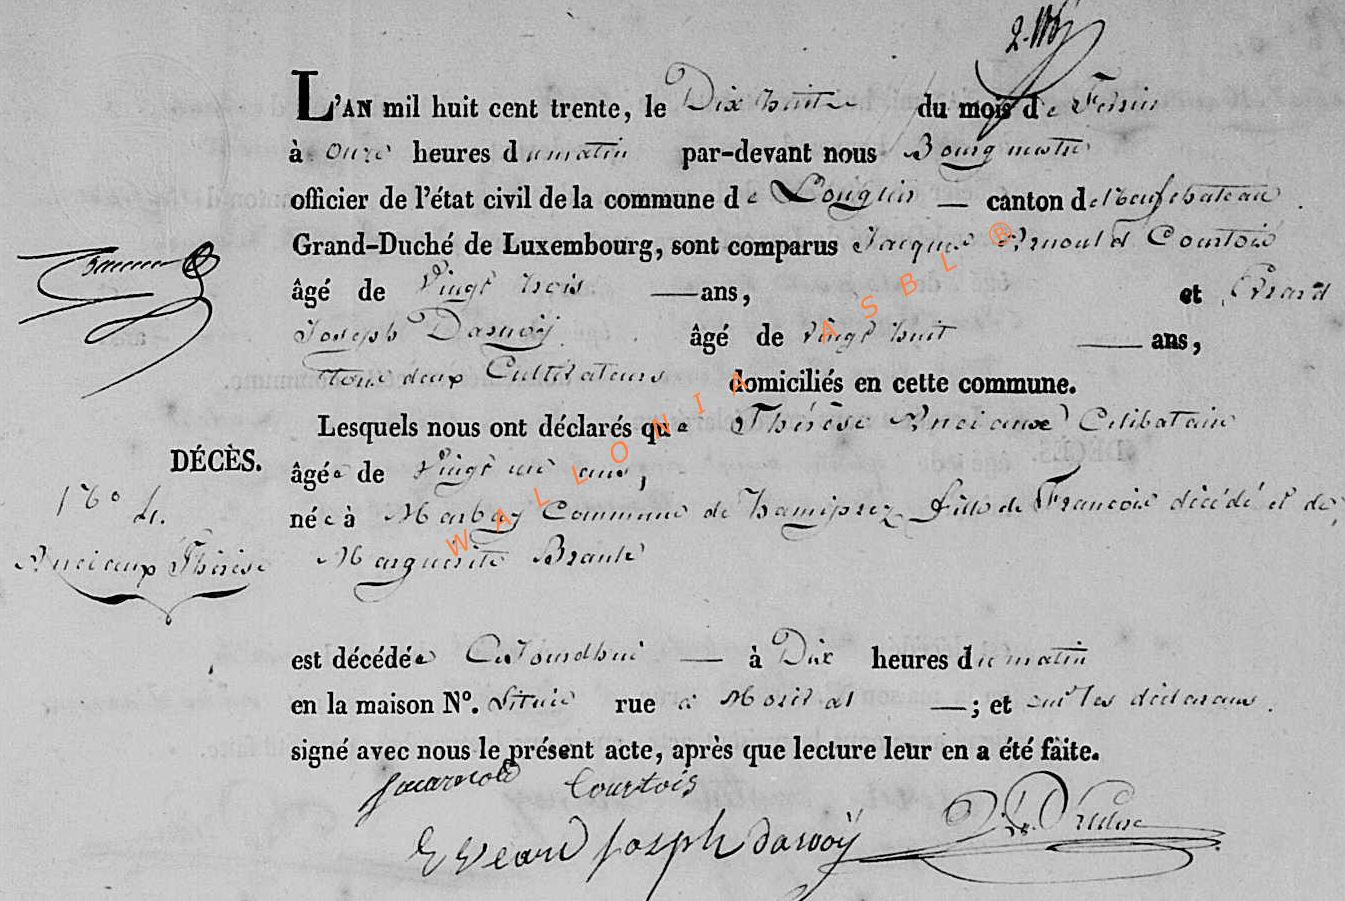 L'AN mil huit cent trente, le Dix huit du mois de Fevrier
à onze heures du matin par-devant nous Bourgmestre
officier de l'état civil de la commune de Longlier — canton de Neufchateau.
Grand-Duché de Luxembourg, sont comparus Jacques Arnould Courtois
âgé de Vingt trois — ans, et Evrard
Joseph Darnoÿ. âgé de vingt huit — ans,
Tous deux Cultivateurs domiciliés en cette commune.
Lesquels nous ont déclarés que Thérèse Anciaux Célibataire
DÉCÈS.
âgée de Vingt un ans,
née à Marbay Commune de hamiprez fille de Francois décédé et de
N° 4.
Anciaux Thérèse
Marguerite
est décédée Cejourdhui — à Dix heures du matin
en la maison N°. située rue à — ; et ont les déclarans
signé avec nous le présent acte, après que lecture leur en a été faite.
Courtois
Evrard joseph darnoÿ
WALLONIA ASBL ®